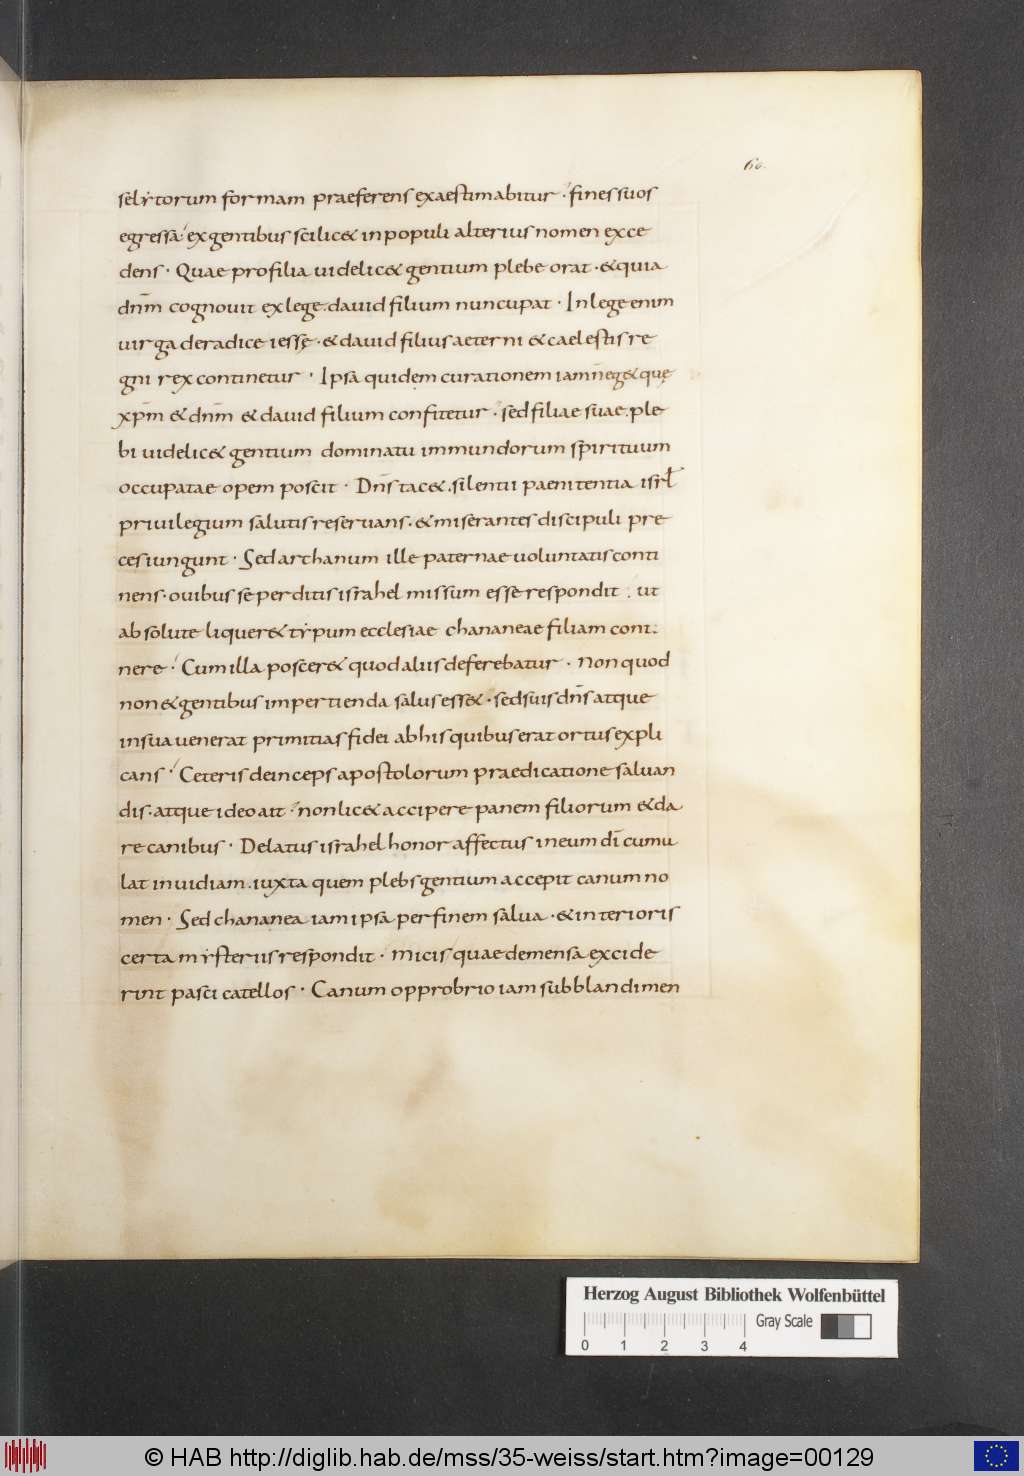 60.
selytorum formam praeferens exaestimabitur · fines suos
egressa · ex gentibus scilic& in populi alterius nomen exce
dens · Quae pro filia uidelic& gentium plebe orat · & quia
dnm̄ cognouit ex lege. dauid filium nuncupat · In lege enim
uirga de radice iesse · & dauid filius aeterni & caelestis re
gni rex continetur · Ipsa quidem curationem iam n̄ eg& quę
xpm̄ & dnm̄ & dauid filium confitetur · sed filiae suae. ple
bi uidelic& gentium dominatu immundorum spirituum
occupatae opem poscit · Dn̄s tac& . silentii paenitentia isrł
priuilegium salutis reseruans. & miserantes discipuli pre
ces iungunt · Sed archanum ille paternae uoluntatis conti
nens · ouibus se perditis israhel missum esse respondit · ut
absolute liquer& typum ecclesiae chananeae filiam conti
nere · Cum illa poscer& quod aliis deferebatur · Non quod
non & gentibus impertienda salus ess& · sed suis dn̄s atque
in sua uenerat primitias fidei ab his quibus erat ortus expli
cans · Ceteris deinceps apostolorum praedicatione saluan
dis · atque ideo ait · non lic& accipere panem filiorum & da
re canibus · Delatus israhel honor affectus in eum dī cumu
lat inuidiam. iuxta quem plebs gentium accepit canum no
men · Sed chananea iam ipsa per finem salua · & interioris
certa mysteriis respondit · Micis quae de mensa excide
rint pasci catellos · Canum opprobrio iam sub blandimen
Herzog August Bibliothek Wolfenbüttel
Gray Scale
0 1 2 3 4
© HAB http://diglib.hab.de/mss/35-weiss/start.htm?image=00129